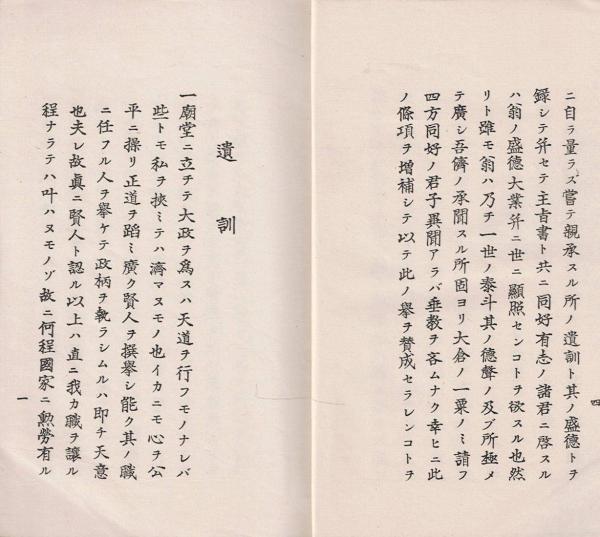 ニ自ラ量ラズ嘗テ親承スル所ノ遺訓ト其ノ盛德トヲ
錄シテ幷セテ主旨書ト共ニ同好有志ノ諸君ニ啓スル
ハ翁ノ盛德大業幷ニ世ニ顯照センコトヲ欲スル也然
リト雖モ翁ハ乃チ一世ノ泰斗其ノ德聲ノ及ブ所極メ
テ廣シ吾儕ノ承聞スル所固ヨリ大倉ノ一粟ノミ請フ
四方同好ノ君子異聞アラバ垂教ヲ吝ムナク幸ヒニ此
ノ條項ヲ增補シテ以テ此ノ擧ヲ賛成セラレンコトヲ
四
遺訓
一廟堂ニ立チテ大政ヲ爲スハ天道ヲ行フモノナレバ
些トモ私ヲ挾ミテハ濟マヌモノ也イカニモ心ヲ公
平ニ操リ正道ヲ蹈ミ廣ク賢人ヲ撰擧シ能ク其ノ職
ニ任フル人ヲ擧ケテ政柄ヲ執ラシムルハ即チ天意
也夫レ故眞ニ賢人ト認ル以上ハ直ニ我カ職ヲ讓ル
程ナラテハ叶ハヌモノゾ故ニ何程國家ニ勲勞有ル
一